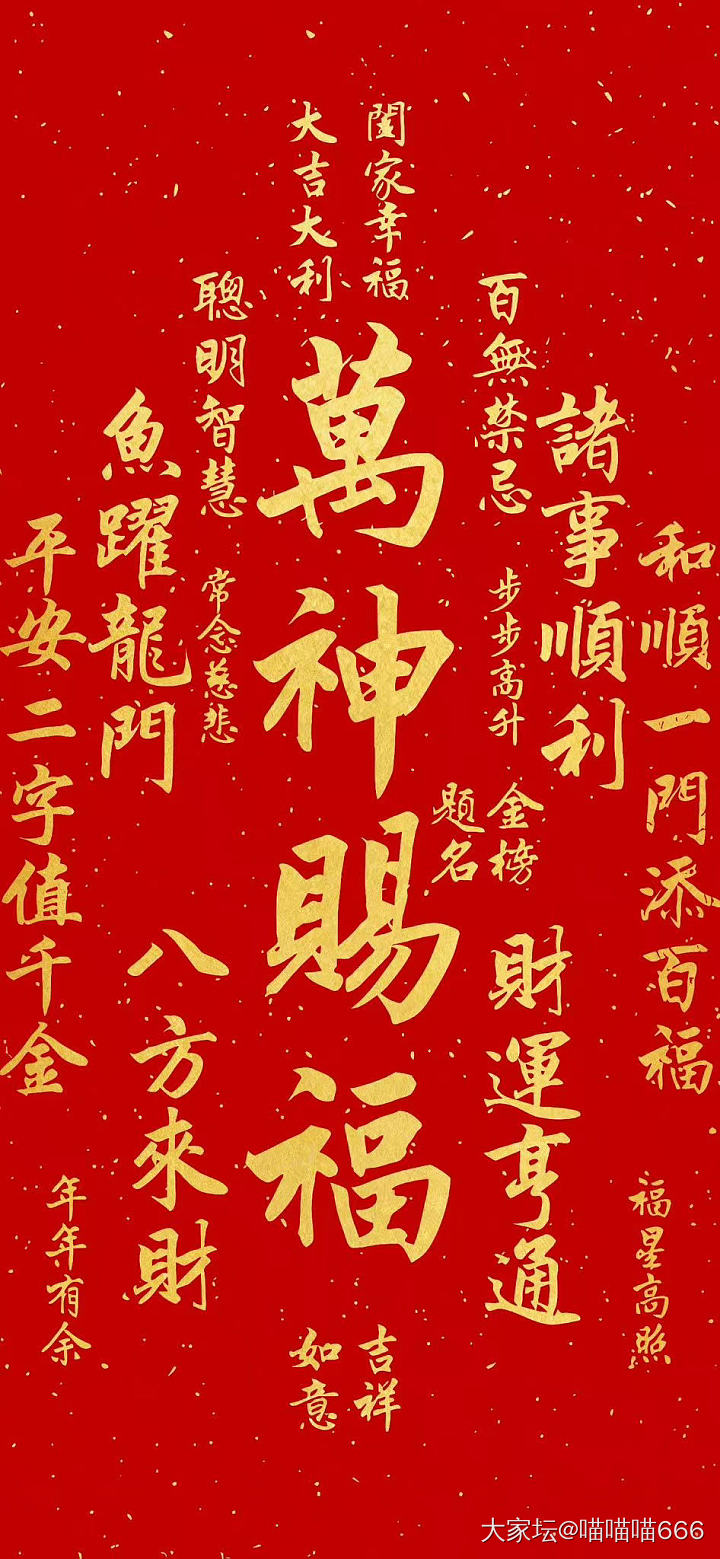 闔家幸福
大吉大利
萬神賜福
百無禁忌
聰明智慧
諸事順利
魚躍龍門
和順一門添百福
平安二字值千金
步步高升
常念慈悲
金榜
題名
財運亨通
八方來財
福星高照
年年有余
吉祥
如意
大家坛@喵喵喵666